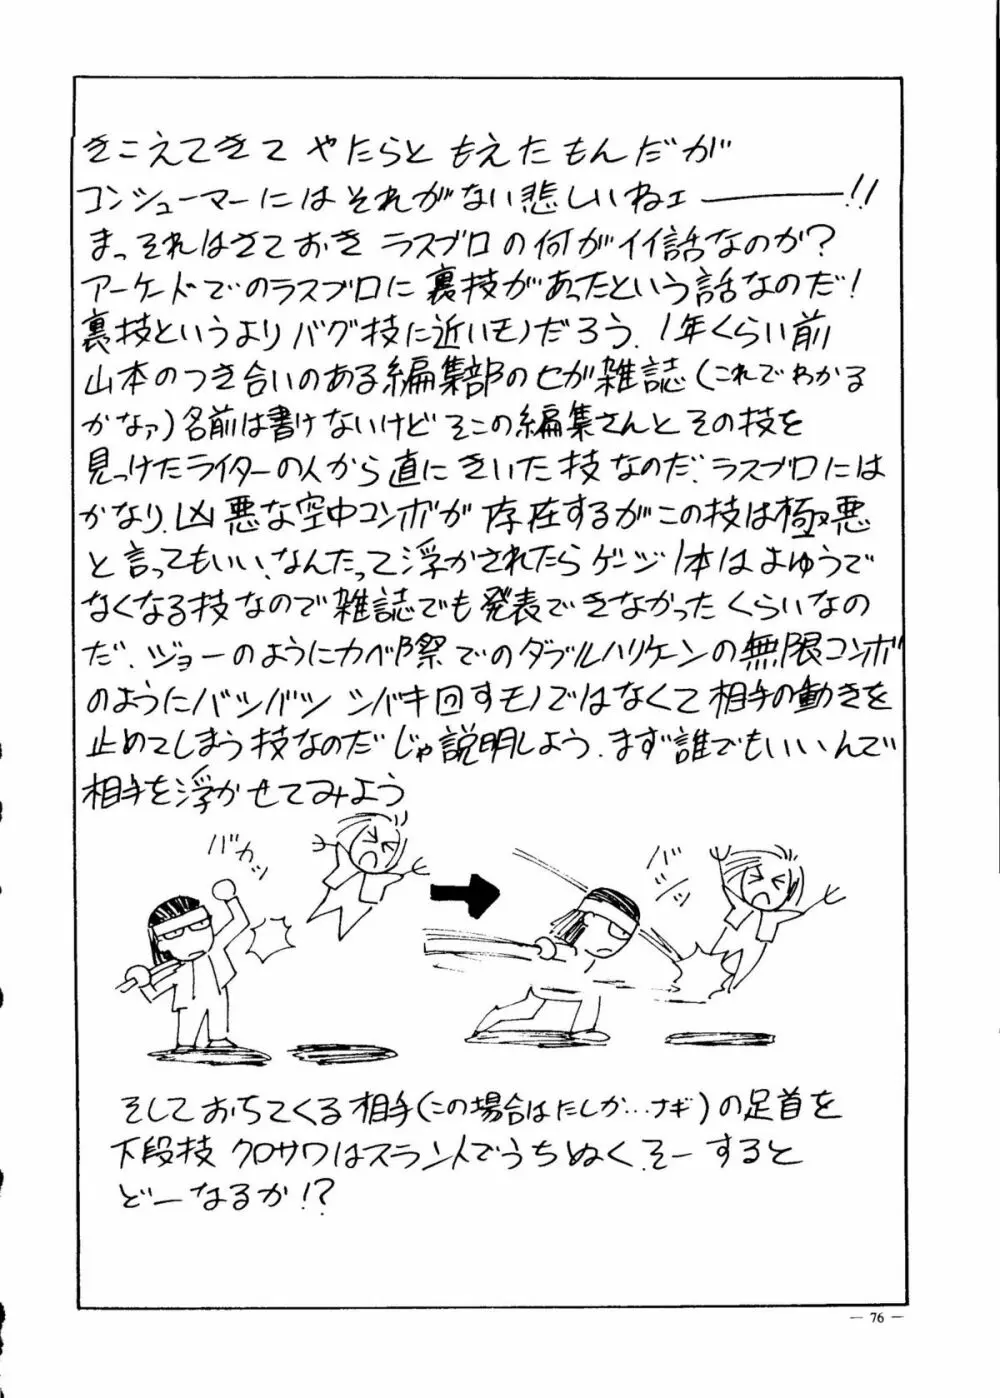 きこえてきて やたらと もえたもんだが
コンシューマーにはそれがない悲しいねェ────!!
まっそれはさておき ラスブロの何がイイ話なのか?
アーケードでのラスブロに裏技があったという話なのだ!
裏技というよりバグ技に近いモノだろう.1年くらい前
山本のつき合いのある編集部のセガ雑誌(これでわかる
かなァ)名前は書けないけど そこの編集さんとその技を
見つけたライターの人から直にきいた技なのだ.ラスブロには
かなり.凶悪な空中コンボが存在するがこの技は極悪
と言ってもいい.なんたって浮かされたらゲージ1本はよゆうで
なくなる技なので雑誌でも発表できなかったくらいなの
だ.ジョーのようにカベ際でのダブルハリケーンの無限コンボ
のようにバシバシ シバキ回すモノではなくて相手の動きを
止めてしまう技なのだ じゃ説明しよう.まず誰でもいいんで
相手を浮かせてみよう
バカッ
バシッ
そしておちてくる相手(この場合はたしか…ナギ)の足首を
下段技 クロサワはスラントでうちぬく.そーすると
どーなるか!?
— 76 —